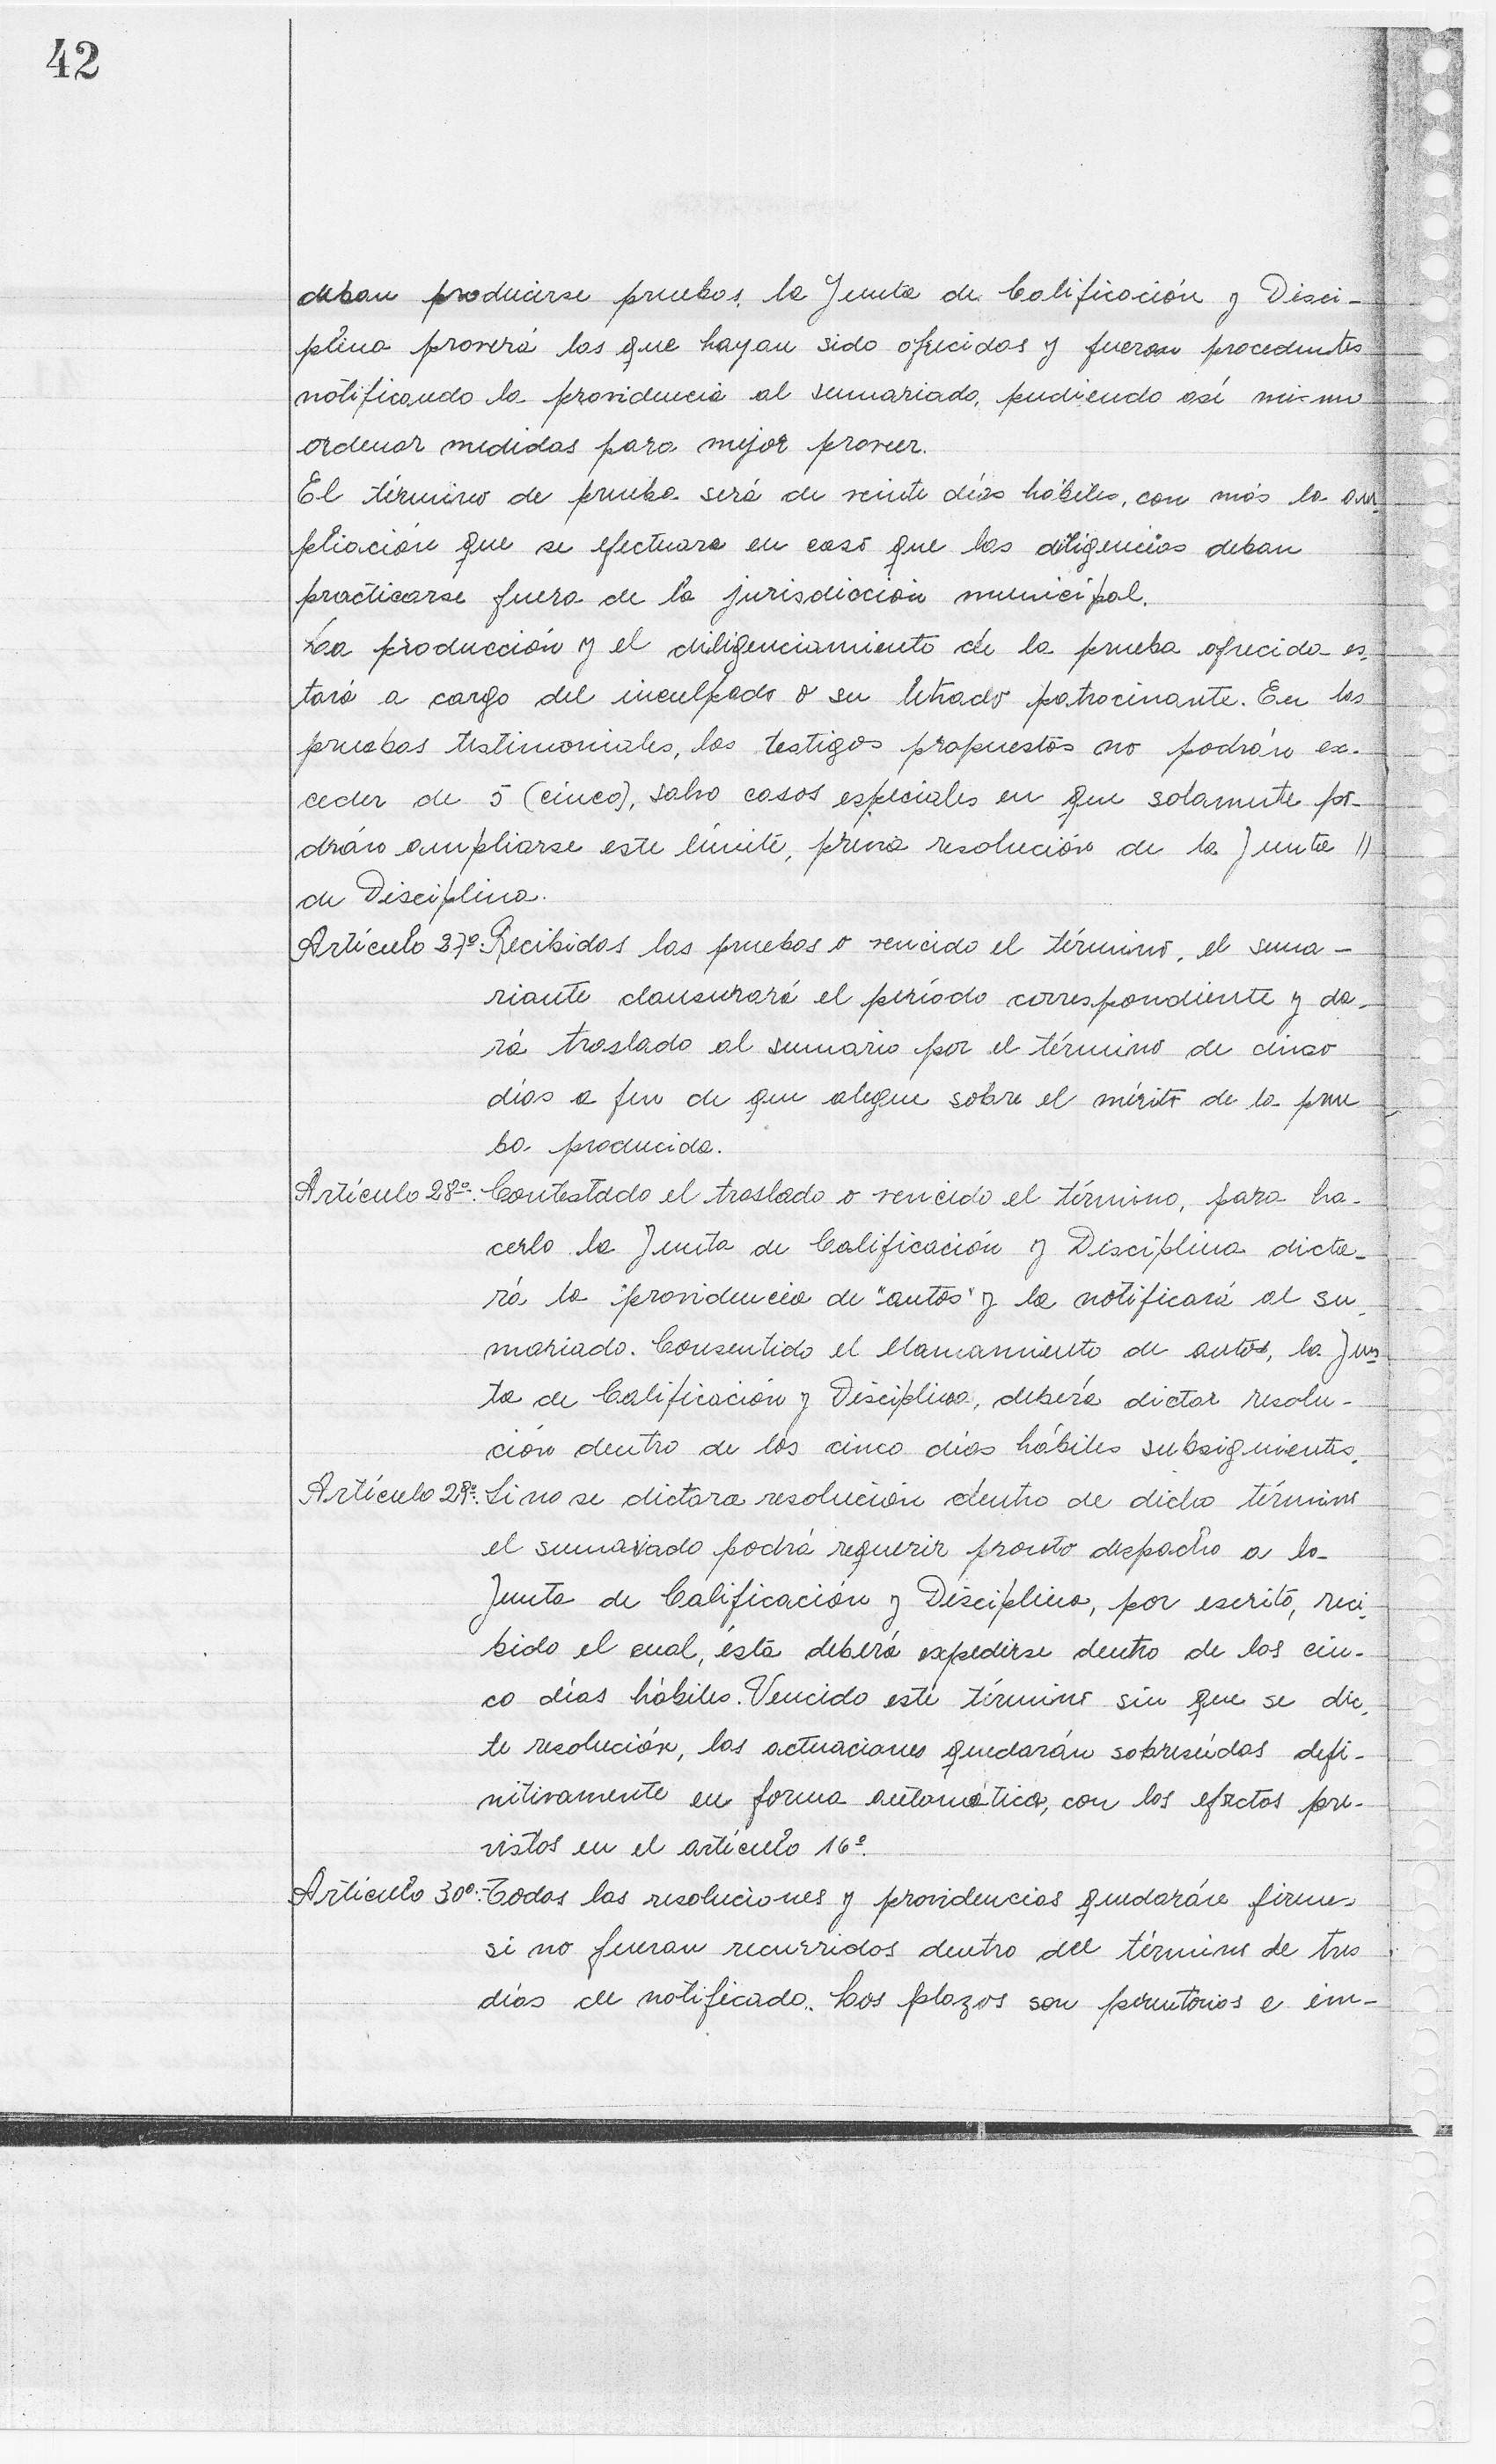 42
deban producirse pruebas, la Junta de Calificación y Disci-
plina proverá las que hayan sido ofrecidas y fueran procedentes
notificando la providencia al sumariado, pudiendo así mismo
ordenar medidas para mejor proveer.
El término de prueba será de veinte días hábiles, con más la am-
pliación que se efectuara en caso que las diligencias deban
practicarse fuera de la jurisdicción municipal.
La producción y el diligenciamiento de la prueba ofrecida es-
tará a cargo del inculpado o su letrado patrocinante. En las
pruebas testimoniales, los testigos propuestos no podrán ex-
ceder de 5 (cinco), salvo casos especiales en que solamente po-
drán ampliarse este límite, previa resolución de la Junta //
de Disciplina.
Artículo 27º: Recibidas las pruebas o vencido el término, el suma-
riante clausurará el período correspondiente y da-
rá traslado al sumario por el término de cinco
días a fin de que alegue sobre el mérito de la prue
ba producida.
Artículo 28º: Contestado el traslado o vencido el término, para ha-
cerlo la Junta de Calificación y Disciplina dicta-
rá la providencia de "autos" y la notificará al su-
mariado. Consentido el llamamiento de autos, la Jun-
ta de Calificación y Disciplina, deberá dictar resolu-
ción dentro de los cinco días hábiles subsiguientes.
Artículo 29º: Si no se dictara resolución dentro de dicho término
el sumariado podrá requerir pronto despacho a la
Junta de Calificación y Disciplina, por escrito, reci-
bido el cual, ésta deberá expedirse dentro de los cin-
co días hábiles. Vencido este término sin que se dic-
te resolución, las actuaciones quedarán sobreseídas defi-
nitivamente en forma automática, con los efectos pre-
vistos en el artículo 16º.
Artículo 30º: Todas las resoluciones y providencias quedarán firmes
si no fueran recurridas dentro del término de tres
días de notificado. Los plazos son perentorios e im-